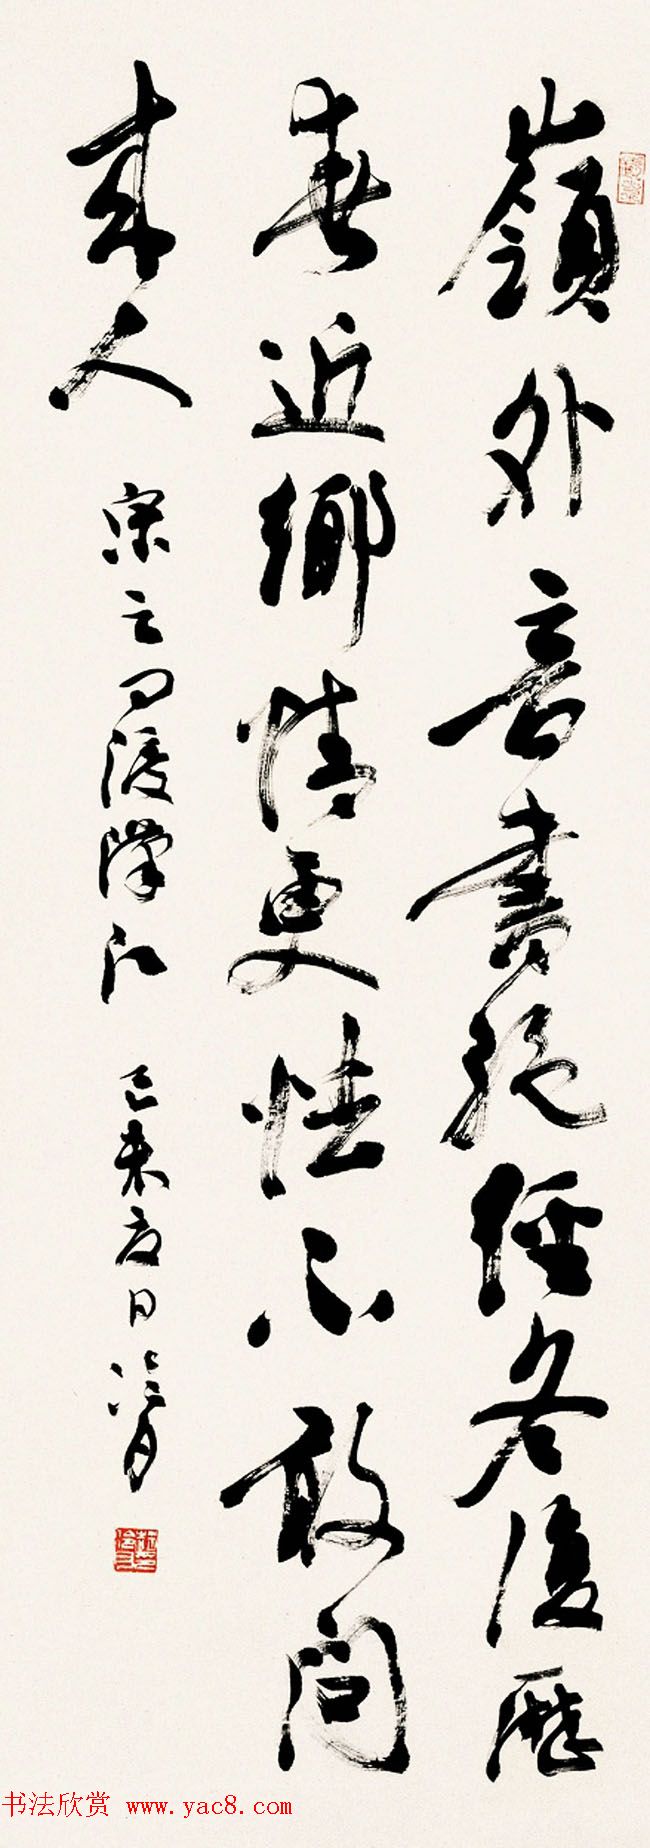 嶺外音書絕經冬復歷
春近鄉情更怯不敢問
來人 宋之問渡漢江 己未夏日 冷月
书法欣赏 www.yac8.com